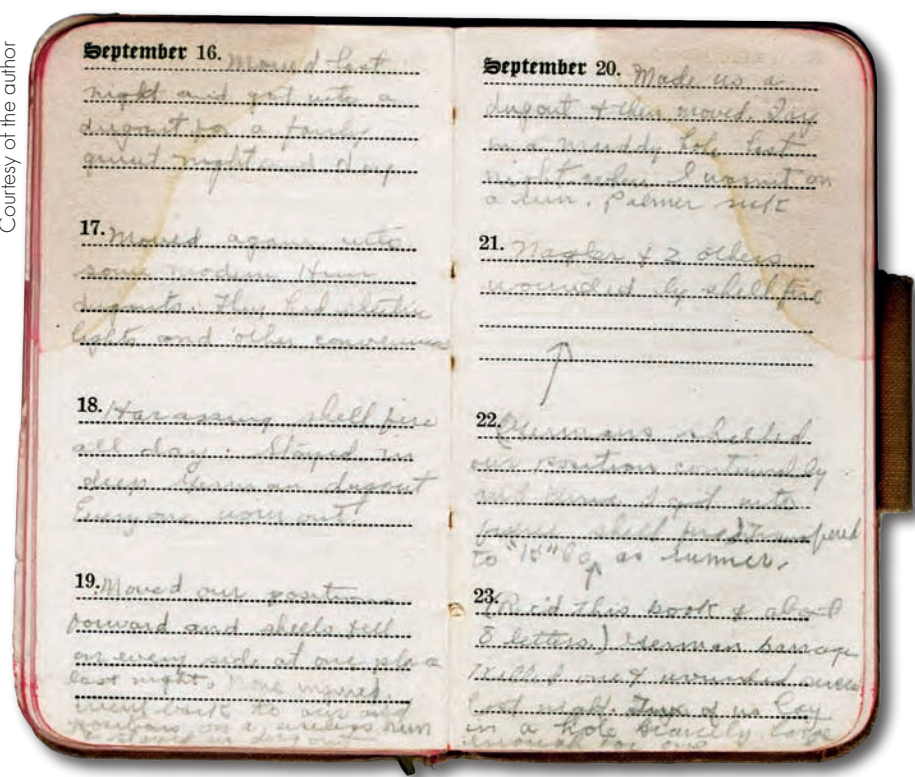 Courtesy of the author
September 16. Moved last
night and got into a
dugout for a fairly
quiet night and day
17. Moved again into
some modern Hun
dugouts. They had electric
lights and other
18. Harassing shell fire
all day. Stayed in
deep German dugout
Everyone worn out
19. Moved our positions
forward and shells fell
on every side at one place
last night. None injured.
went back to our old
positions on a
September 20. Made us a
dugout & then moved. Lay
in a muddy hole last
night when I wasn't on
a run. Palmer sick
21. Nagler & 2 others
wounded by shell fire
22. (Germans shelled
our position continually
and I got into
shell fire) Transfered
to "K" Co. as runner.
23. (Rec'd this book & about
8 letters.) German barrage
killed one & wounded seven
last night. of us lay
in a hole scarcely large
enough for one